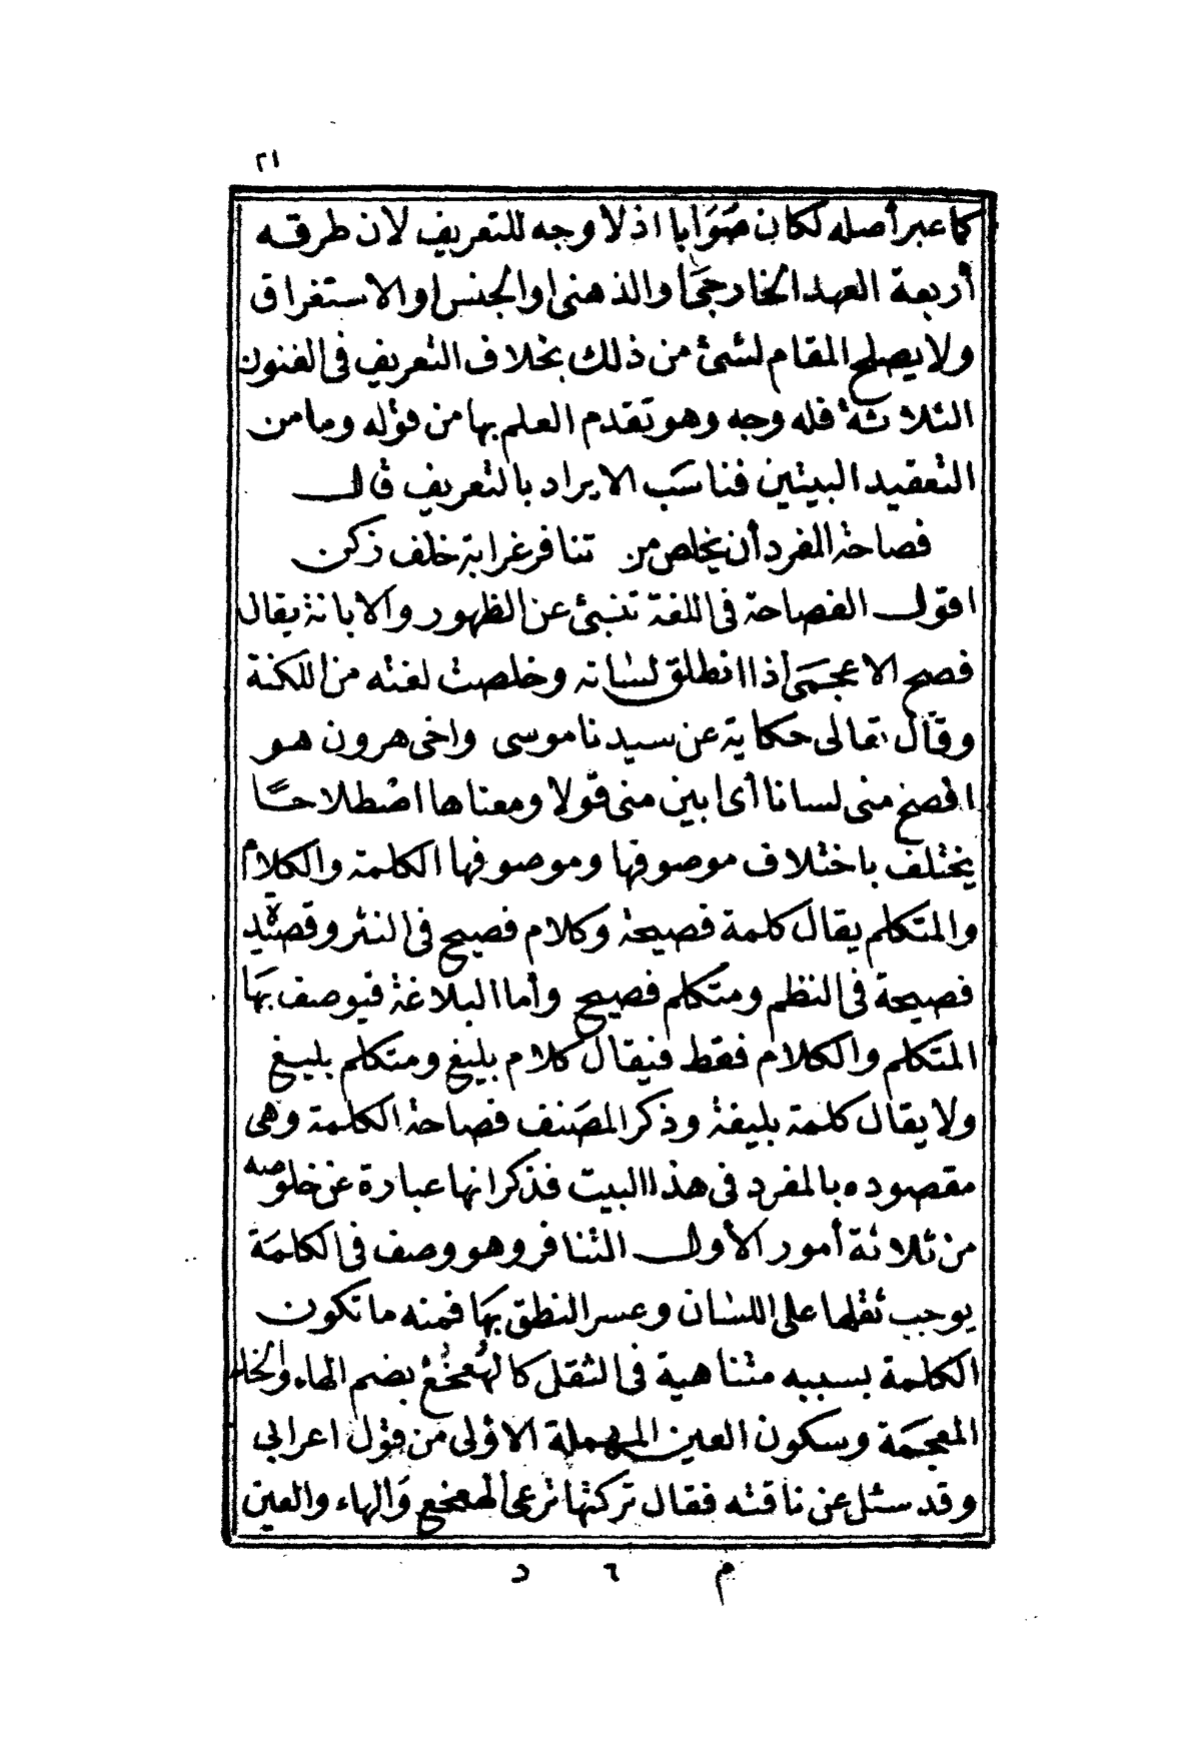 ٢١
كما عبر أصله لكان صَوَابا اذ لا وجه للتعريف لان طرقه
أربعة العهد الخارجى أوالذهنى اوالجنس اوالاستغراق
ولا يصلح المقام لشئ من ذلك بخلاف التعريف فى الفنون
الثلاثة فله وجه وهو تقدم العلم بها من قوله وما من
التعقيد البيتين فناسَب الايراد بالتعريف قال
فصاحة المفرد أن يخلص من تنافر غرابة خلف زكن
اقول الفصاحة فى اللغة تنبئ عن الظهور والابانة يقال
فصح الاعجمَى أذا انطلق لسانه وخلصت لغته من اللكنة
وقال تعالى حكاية عن سيدنا موسى واخى هرون هو
افصح منى لسانا أى ابين منى قولا ومعناها اصطلاحًا
يختلف باختلاف موصوفها وموصوفها الكلمة والكلام
والمتكلم يقال كلمة فصيحة وكلام فصيح فى النثر وقصيدة
فصيحة فى النظم ومتكلم فصيح وأما البلاغة فيوصف بهَا
المتكلم والكلام فقط فيقال كلام بليغ ومتكلم بليغ
ولا يقال كلمة بليغة وذكر المصَنف فصاحة الكلمة وهى
مقصوده بالمفرد فى هذا البيت فذكر انها عبارة عن خلوصه
من ثلاثة أمور الأول التنافر وهو وصف فى الكلمَة
يوجب ثقلها على اللسان وعسر النطق بهَا فمنه ما تكون
الكلمة بسببه متناهية فى الثقل كالهُعْخُع بضم الهاء والخاء
المعجمَة وسكون العين المهملة الاؤلى من قول اعرابى
وقد سئل عن ناقته فقال تركتها ترعى الهعخع وَالهاء والعين
م ٦ د